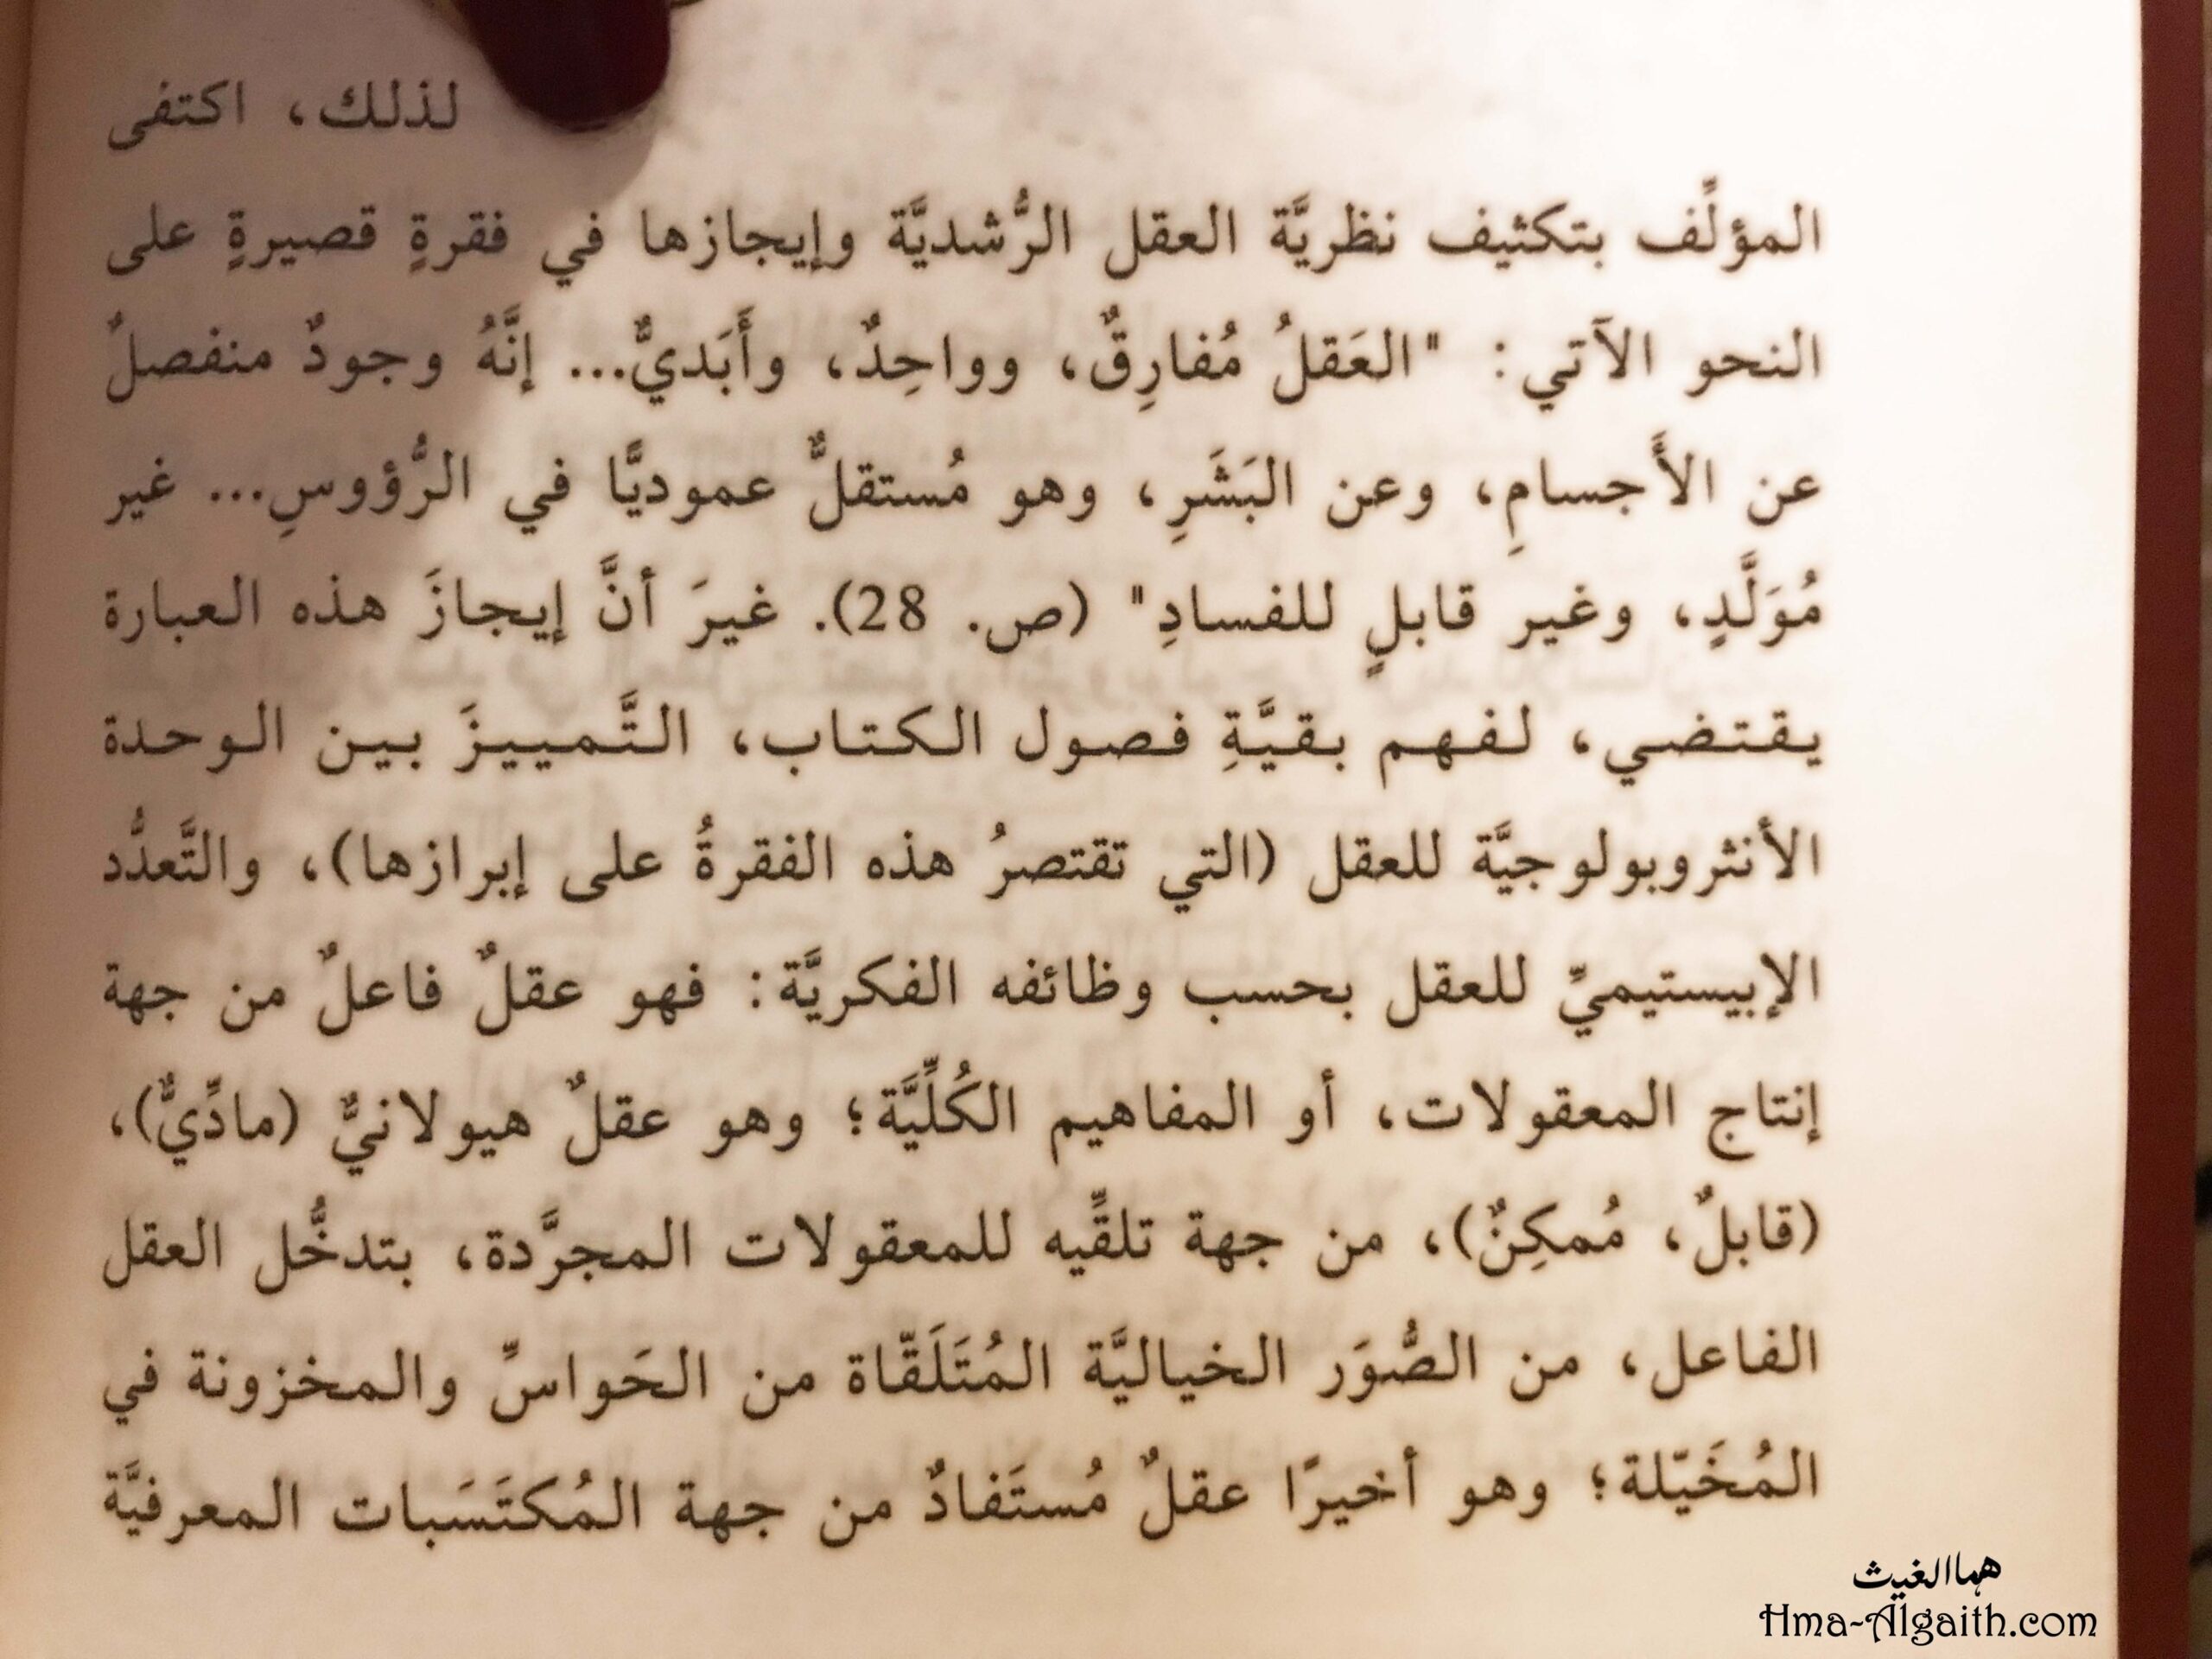 لذلك، اكتفى
المؤلِّف بتكثيف نظريَّة العقل الرُّشديَّة وإيجازها في فقرةٍ قصيرةٍ على
النحو الآتي: "العَقلُ مُفارِقٌ، وواحِدٌ، وأَبَديٌّ... إنَّهُ وجودٌ منفصلٌ
عن الأَجسامِ، وعن البَشَرِ، وهو مُستقلٌّ عموديًّا في الرُّؤوسِ... غير
مُوَلَّدٍ، وغير قابلٍ للفسادِ" (ص. 28). غيرَ أنَّ إيجازَ هذه العبارة
يقتضي، لفهم بقيَّةِ فصول الكتاب، التَّمييزَ بين الوحدة
الأنثروبولوجيَّة للعقل (التي تقتصرُ هذه الفقرةُ على إبرازها)، والتَّعدُّد
الإبيستيميِّ للعقل بحسب وظائفه الفكريَّة: فهو عقلٌ فاعلٌ من جهة
إنتاج المعقولات، أو المفاهيم الكُلِّيَّة؛ وهو عقلٌ هيولانيٌّ (مادِّيٌّ)،
(قابلٌ، مُمكِنٌ)، من جهة تلقِّيه للمعقولات المجرَّدة، بتدخُّل العقل
الفاعل، من الصُّوَر الخياليَّة المُتَلَقّاة من الحَواسِّ والمخزونة في
المُخَيّلة؛ وهو أخيرًا عقلٌ مُستَفادٌ من جهة المُكتَسَبات المعرفيَّة
هما الغيث
Hma-Algaith.com